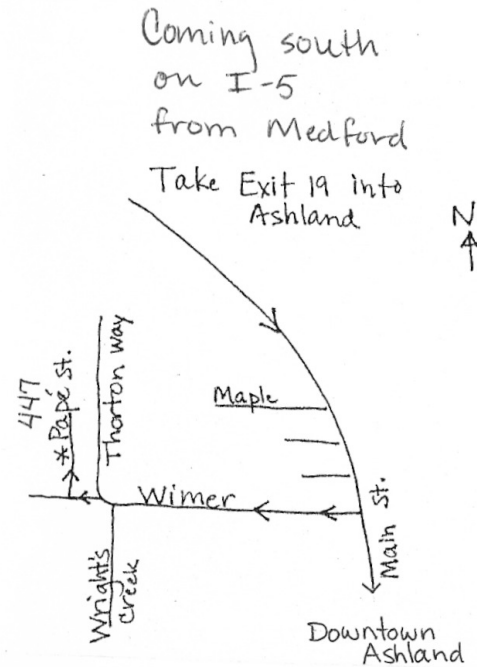 Coming south
on I-5
from Medford
Take Exit 19 into
Ashland
N
Maple
447
*Papé St.
Thorton Way
Wimer
Wright's
creek
Main St.
Downtown
Ashland